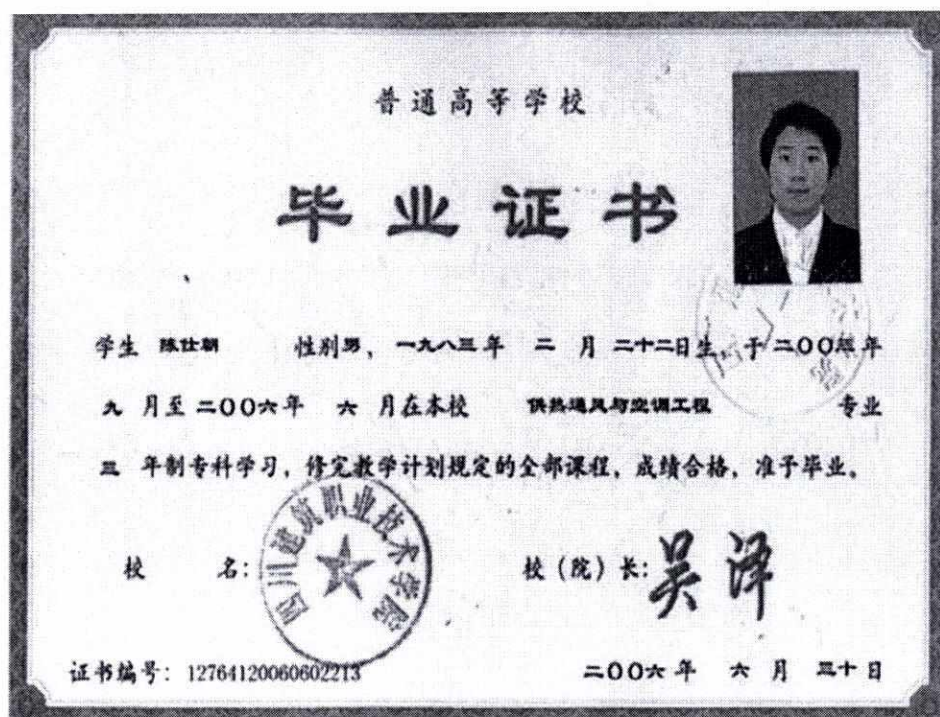 普通高等学校
毕业证书
学生 陈仕朝 性别男，一九八三年 二 月 二十二日生 于二〇〇 年
九 月至 二〇〇六年 六 月在本校 供热通风与空调工程 专业
三 年制专科学习，修完教学计划规定的全部课程，成绩合格，准予毕业。
校 名： 四川建筑职业技术学院 校（院）长： 吴泽
证书编号：12764120060602213 二〇〇六年 六 月 三十日